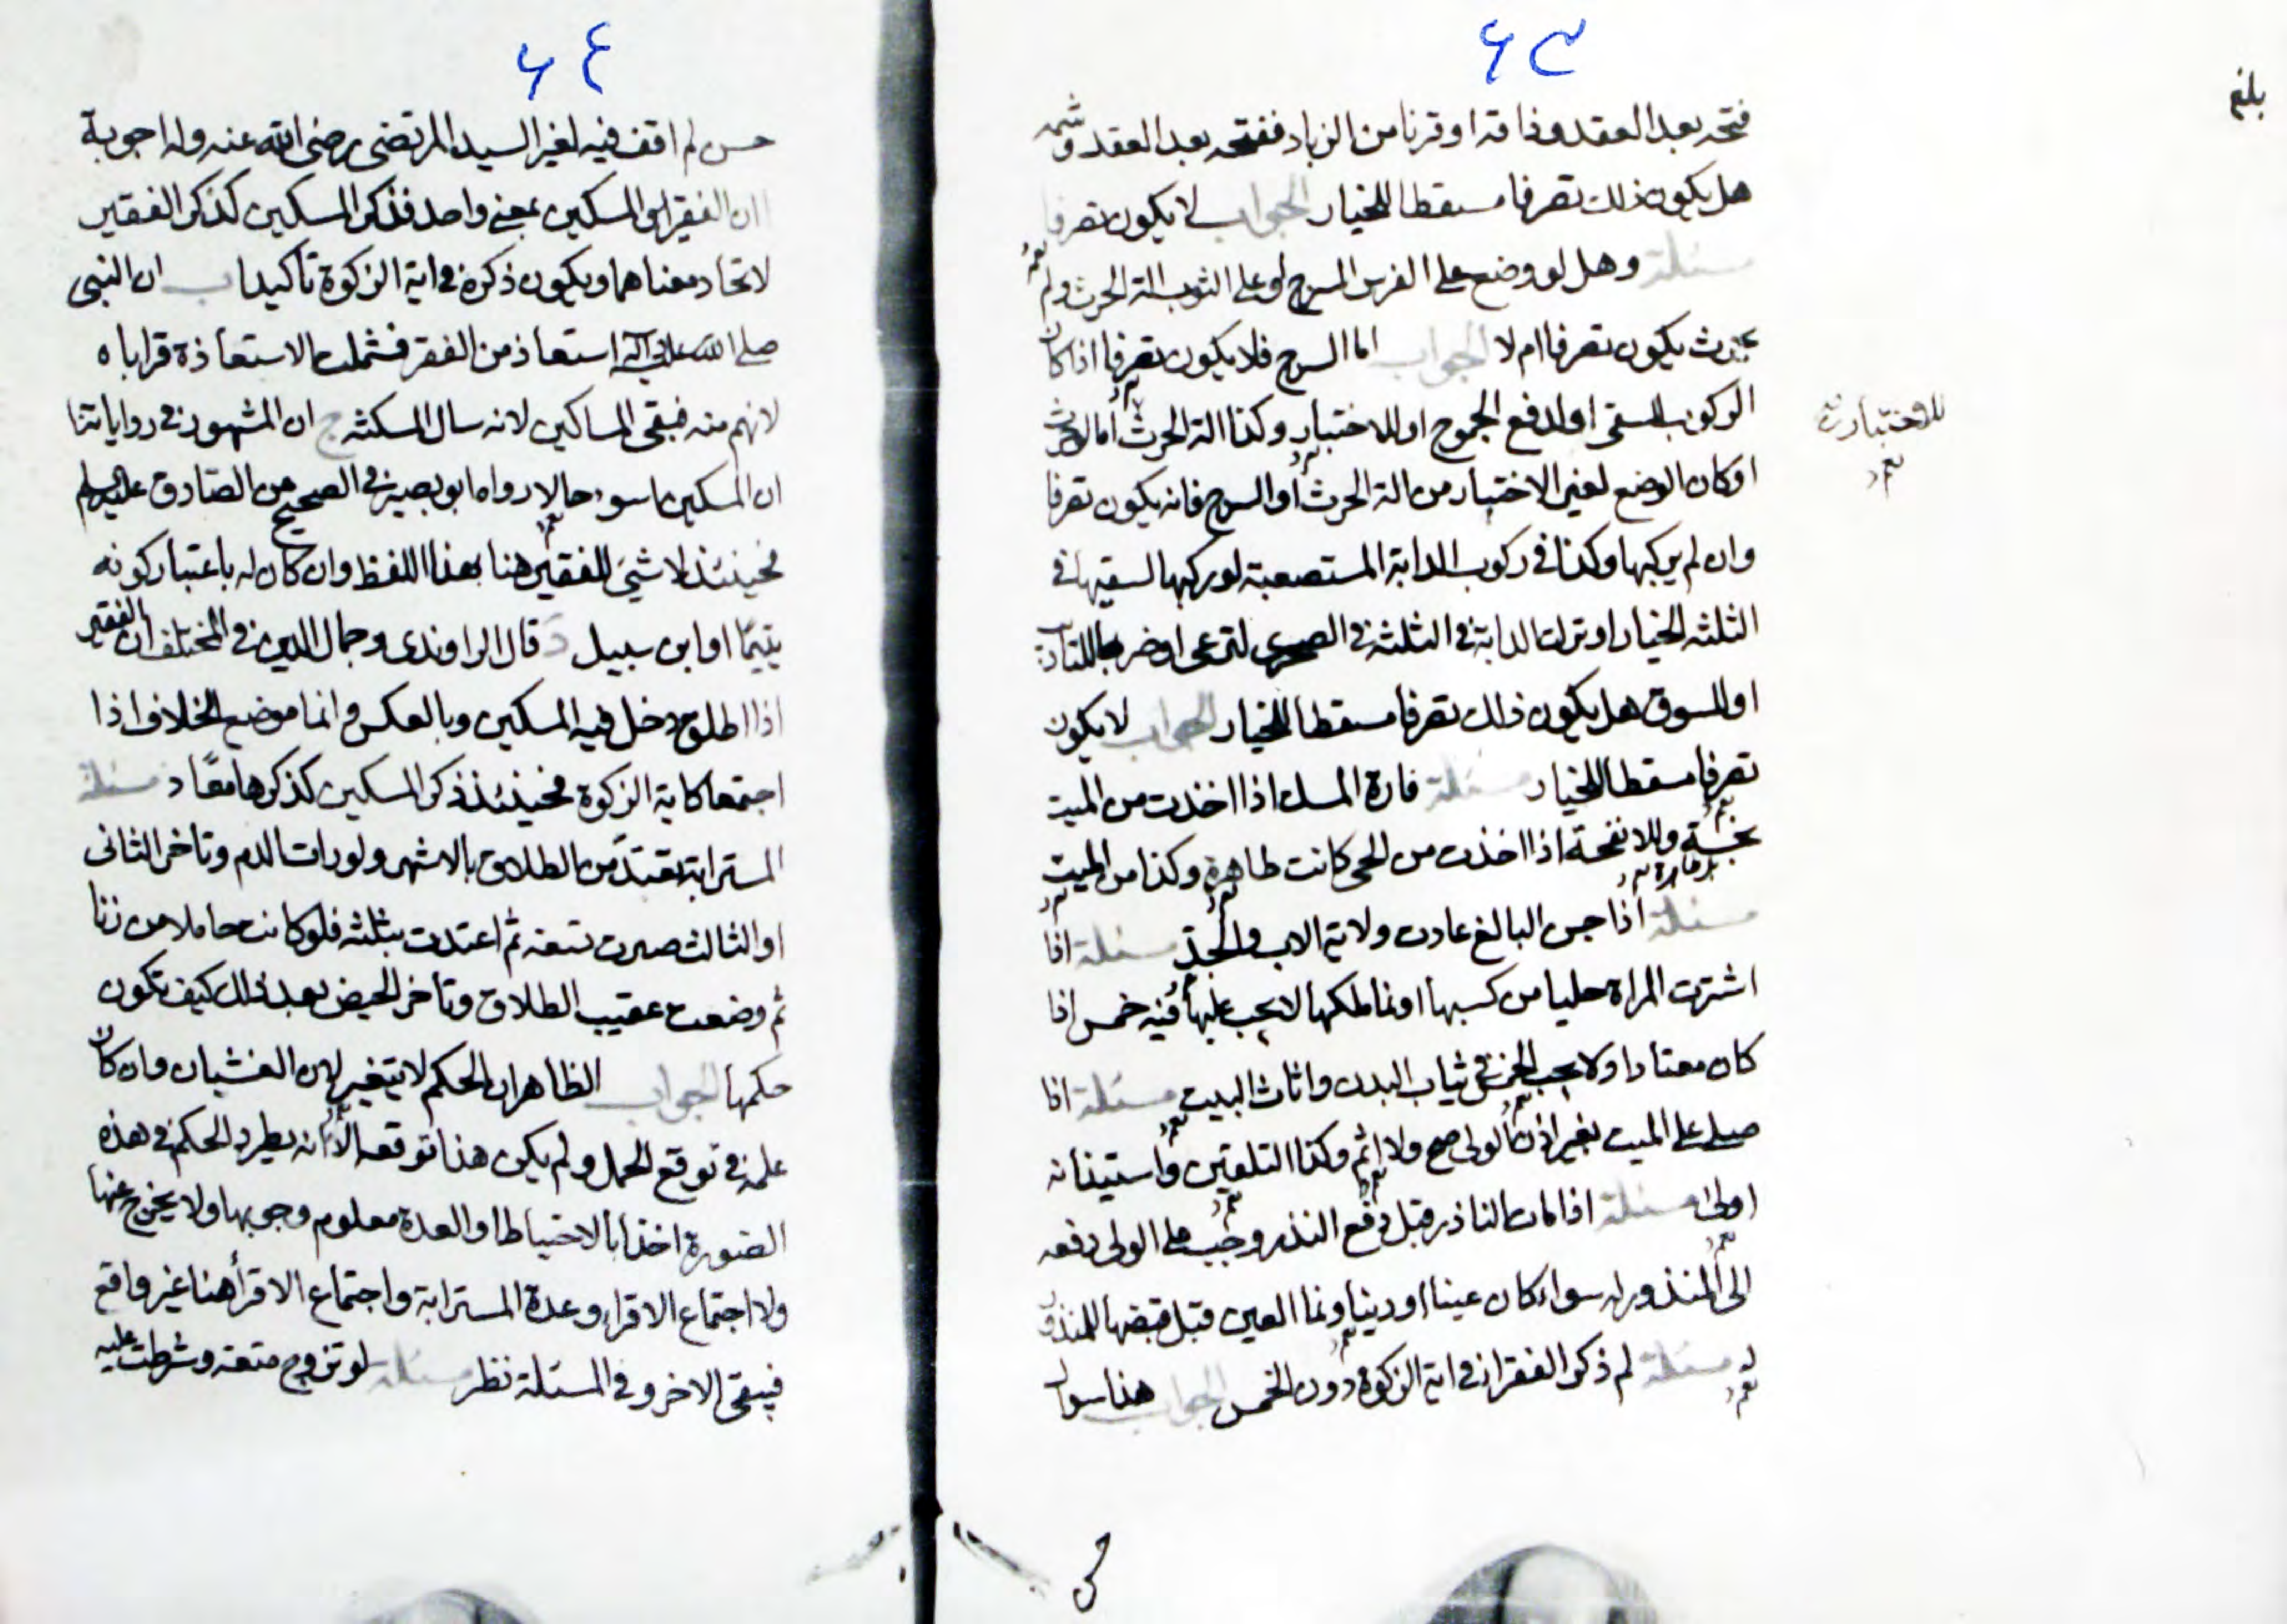 ٦٣
بلغ
فتحه بعد العقد وذاقه او قرنا من الزباد ففتحه بعد العقد وشمه
هل يكون ذلك تصرفا مسقطا للخيار الجواب لا يكون تصرفا
مسئلة وهل لو وضع على الفرس السرج او على الثور الة الحرث ولم
يحرث يكون تصرفا ام لا الجواب اما السرج فلا يكون تصرفا اذا كان
الركوب للسقي او لدفع الجموح او للاختبار وكذا الة الحرث اما لو حرث
للاختبار
او كان الوضع لغير الاختبار من الة الحرث او السرج فانه يكون تصرفا
وان لم يركبها وكذا في ركوب الدابة المستصعبة لو ركبها لسقيها في
الثلثه الخيار او ترك الدابة في الثلثه في الصحرى لترعى او ضربها للتاديب
او للسوق هل يكون ذلك تصرفا مسقطا للخيار الجواب لا يكون
تصرفا مسقطا للخيار مسئلة فارة المسك اذا اخذت من الميت
نجسة والانفحة اذا اخذت من الحى كانت طاهرة وكذا من الميت
مسئلة اذا جن البالغ عادت ولاية الاب والجد مسئلة اذا
اشترت المراة حليا من كسبها او نما ملكها لا يجب عليها فيه خمس اذا
كان معتادا ولا يجب الخمس في ثياب البدن واثاث البيت مسئلة اذا
صلى على الميت بغير اذن الولى صح ولا اثم وكذا التلقين واستيذانه
اولى مسئلة اذا مات الناذر قبل دفع النذر وجب على الولى دفعه
الى المنذور له سواء كان عينا او دينا ونما العين قبل قبضها للمنذور
له مسئلة لم ذكر الفقرا في اية الزكوة دون الخمس الجواب هذا سوال
حسن
٦٤
حسن لم اقف فيه لغير السيد المرتضى رضى الله عنه وله اجوبة
ا ان الفقير والمسكين بمعنى واحد فذكر المسكين كذكر الفقير
لاتحاد معناهما ويكون ذكره في اية الزكوة تاكيدا ب ان النبى
صلى الله عليه وآله استعاذ من الفقر فشملت الاستعاذة قراباه
لانهم منه فبقى المساكين لانه سال المسكنه ج ان المشهور في رواياتنا
ان المسكين اسوء حالا رواه ابو بصير في الصحيح عن الصادق عليه السلم
فحينئذ لا شئ للفقير هنا بهذا اللفظ وان كان له باعتبار كونه
يتيما او ابن سبيل د قال الراوندى وجمال الدين في المختلف ان الفقير
اذا اطلق دخل فيه المسكين وبالعكس وانما موضع الخلاف اذا
اجتمعا كاية الزكوة فحينئذ ذكر المسكين كذكرهما معا مسئلة
المسترابة تعتد من الطلاق بالاشهر ولو رات الدم وتاخر الثانى
او الثالث صبرت تسعه ثم اعتدت بثلثه فلو كانت حاملا من زنا
ثم وضعت عقيب الطلاق وتاخر الحيض بعد ذلك كيف تكون
حكمها الجواب الظاهر ان الحكم لا يتغير لهن الغشيان وان كان
علمه في توقع الحمل ولم يكن هنا توقعه الا انه يطرد الحكم في هذه
الصورة اخذا بالاحتياط والعدة معلوم وجوبها ولا يخرج عنها
ولا اجتماع الاقراء وعدة المسترابة واجتماع الاقرأ هنا غير واقع
فيبقى الاخر وفي المسئلة نظر مسئلة لو تزوج متعه وشرطت عليه